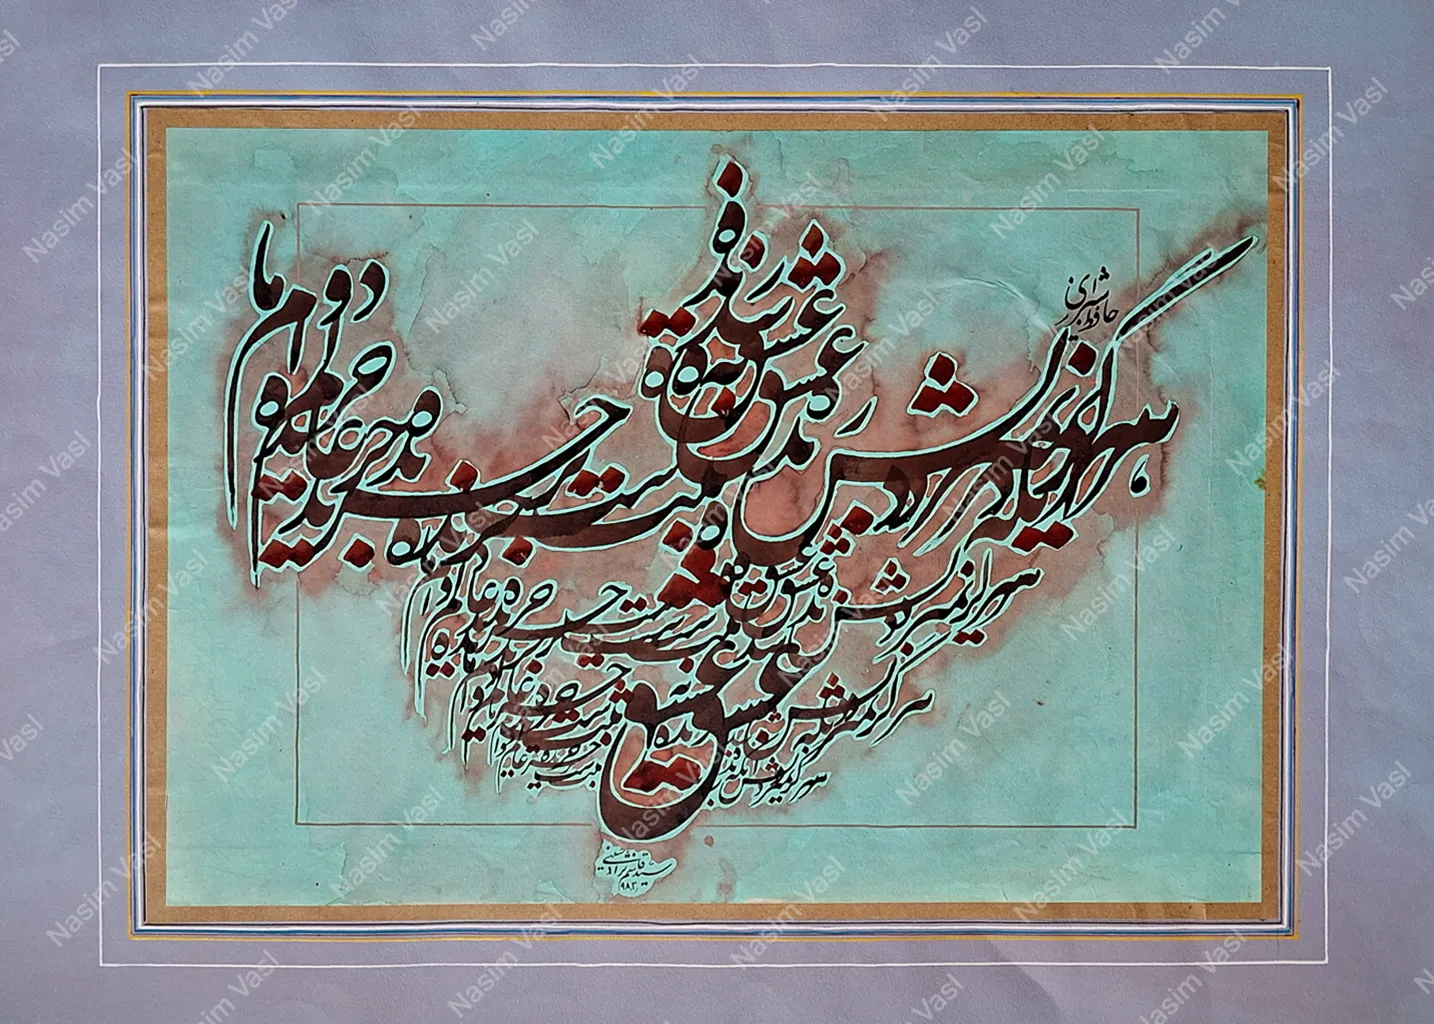 حافظ شیرازی
هرگز نمیرد آنکه دلش زنده شد به عشق
ثبت است بر جریده عالم دوام ما
هرگز نمیرد آنکه دلش زنده شد به عشق
ثبت است بر جریده عالم دوام ما
هرگز نمیرد آنکه دلش زنده شد به عشق
ثبت است بر جریده عالم دوام ما
هرگز نمیرد آنکه دلش زنده شد به عشق
ثبت است بر جریده عالم دوام ما
Nasim Vasl